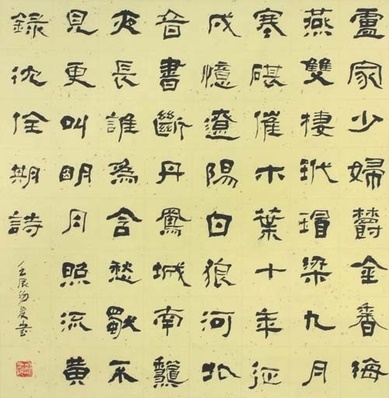 盧家少婦欝金香海
燕雙棲玳瑁梁九月
寒碪催木葉十年征
戍憶遼陽白狼河北
音書斷丹鳳城南龝
夜長誰為含愁獨不
見更叫明月照流黃
錄沈佺期詩
壬辰書